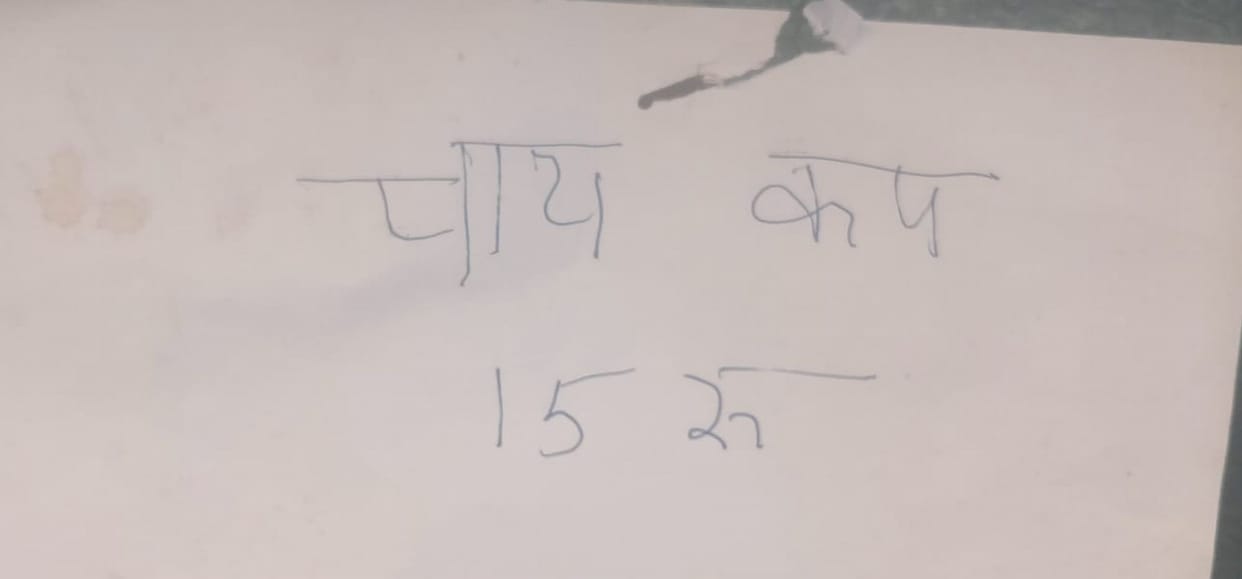 चाय कप
15 रु